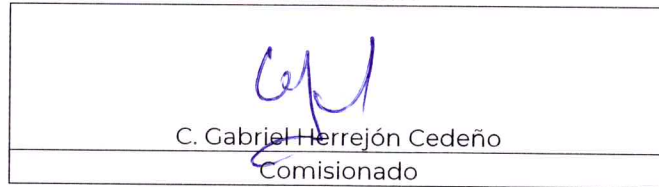 C. Gabriel Herrejón Cedeño
Comisionado